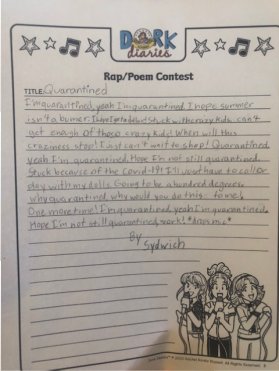 DORK
diaries
Rap/Poem Contest
TITLE: Quarantined
I'm quarantined, yeah I'm quarantined. I hope summer
isn't a bumer. Stuck with crazy kids, can't
get enough of those crazy kids! When will this
craziness stop! I just can't wait to shop! Quarantined
yeah I'm quarantined. Hope I'm not still quarantined.
Stuck because of the Covid-19! I'll just have to call or
play with my dolls. Going to be a hundred degrees
why quarantined, why would you do this to me!
One more time! I'm quarantined, yeah I'm quarantined.
Hope I'm not still quarantined, *drops mic*
By
Sydwich